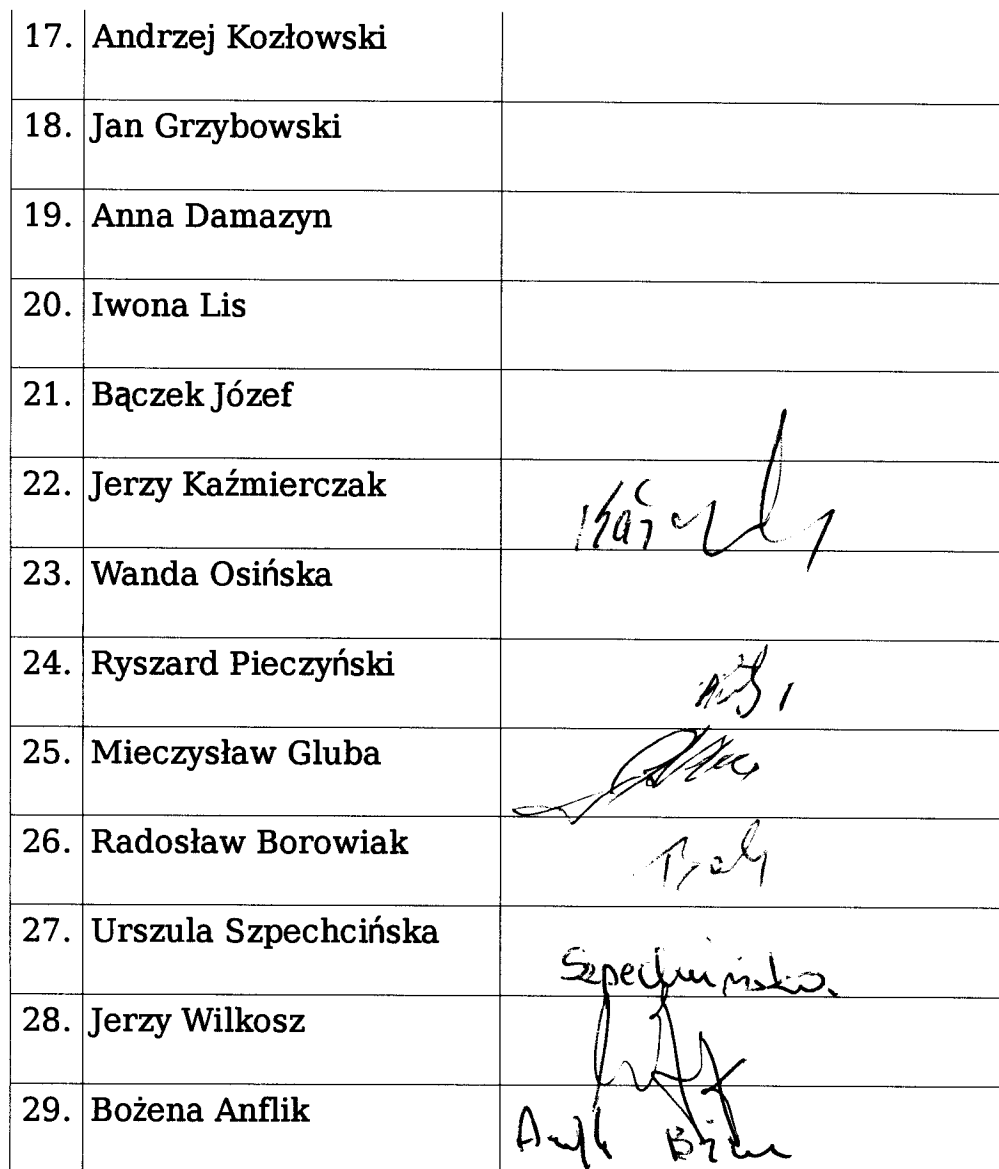 17. Andrzej Kozłowski
18. Jan Grzybowski
19. Anna Damazyn
20. Iwona Lis
21. Bączek Józef
22. Jerzy Kaźmierczak
23. Wanda Osińska
24. Ryszard Pieczyński
25. Mieczysław Gluba
26. Radosław Borowiak
27. Urszula Szpechcińska
Szpechcińska
28. Jerzy Wilkosz
29. Bożena Anflik